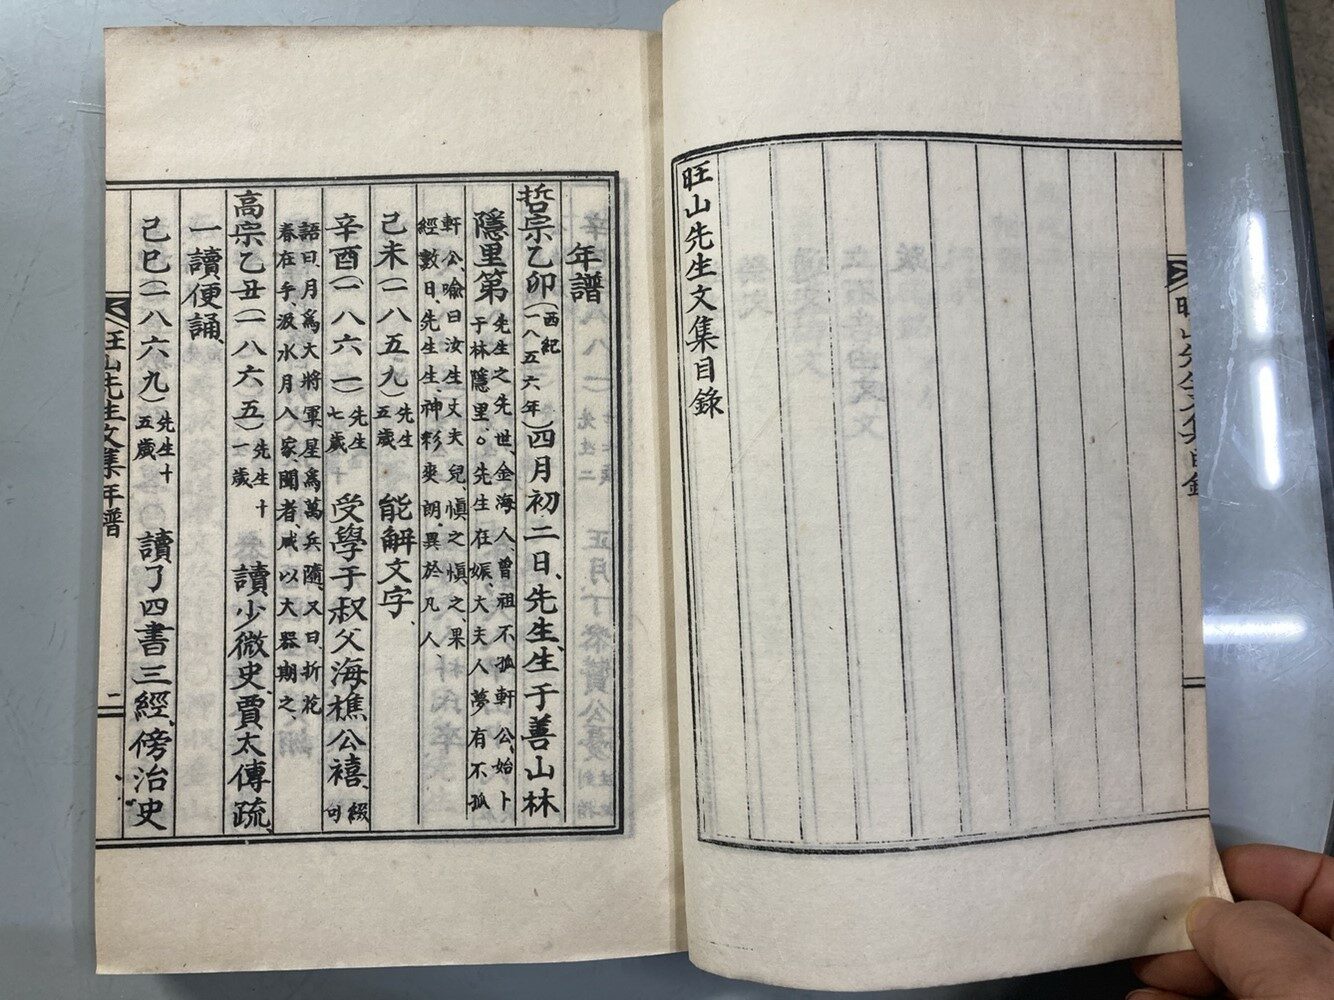 旺山先生文集目錄
旺山先生文集目錄
年譜
哲宗乙卯(西紀一八五六年)四月初二日、先生、生于善山林
隱里第先生之先世、金海人曾祖不孤軒公、始卜
于林隱里。先生在娠、大夫人夢有不孤
軒公、喩曰汝生丈夫兒、愼之愼之、果
經數日、先生生、神彩爽朗、異於凡人、
己未(一八五九)先生五歲 能解文字、
辛酉(一八六一)先生七歲 受學于叔父海樵公禧、綴句
語曰、月爲大將軍星爲萬兵隨、又曰、折花
春在手、汲水月入家、聞者、咸以大器期之、
高宗乙丑(一八六五)先生十一歲 讀少微史、賈太傅疏、
一讀便誦、
己巳(一八六九)先生十五歲 讀了四書三經、傍治史
旺山先生文集年譜
二